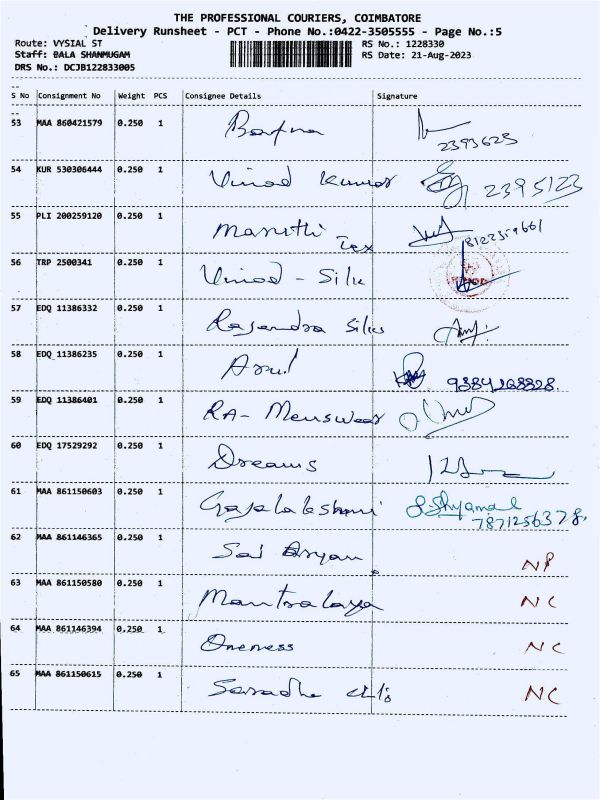 THE PROFESSIONAL COURIERS, COIMBATORE
Delivery Runsheet - PCT - Phone No.:0422-3505555 - Page No.:5
Route: VYSIAL ST RS No.: 1228330
Staff: BALA SHANMUGAM RS Date: 21-Aug-2023
DRS No.: DCJB122833005
S No Consignment No Weight PCS Consignee Details Signature
53 MAA 860421579 0.250 1 Bafna
2393623
54 KUR 530306444 0.250 1 Vinod Kumar 2395123
55 PLI 200259120 0.250 1 Maruthi Tex 8122359661
56 TRP 2500341 0.250 1 Vinod - Silk
57 EDQ 11386332 0.250 1 Rajendra Silks
58 EDQ 11386235 0.250 1 Arul 9384268828
59 EDQ 11386401 0.250 1 RA- Menswear
60 EDQ 17529292 0.250 1 Dreams
61 MAA 861150603 0.250 1 Gajalakshmi S. Shyamal
7871256378,
62 MAA 861146365 0.250 1 Sai Aryan NP
63 MAA 861150580 0.250 1 Mantralaya NC
64 MAA 861146394 0.250 1 Oneness NC
65 MAA 861150615 0.250 1 Saradha NC